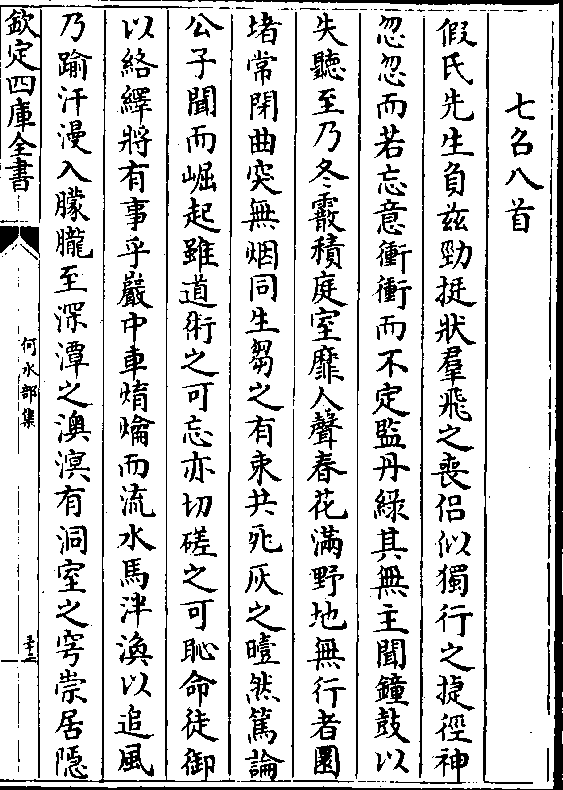 七召八首
假氏先生負茲勁挺狀羣飛之喪侶似獨行之捷徑神
忽忽而若忘意衝衝而不定監丹緑其無主聞鐘鼓以
失聽至乃冬霰積庭室靡人聲春花滿野地無行者圜
堵常閉曲突無烟同生芻之有束共死灰之曀然篤論
公子聞而崛起雖道術之可忘亦切磋之可恥命徒御
以絡繹將有事乎嚴中車焴爚而流水馬泮渙以追風
乃踰汗漫入朦朧至深潭之澳溟有洞室之穹崇居隱
欽定四庫全書
何水部集